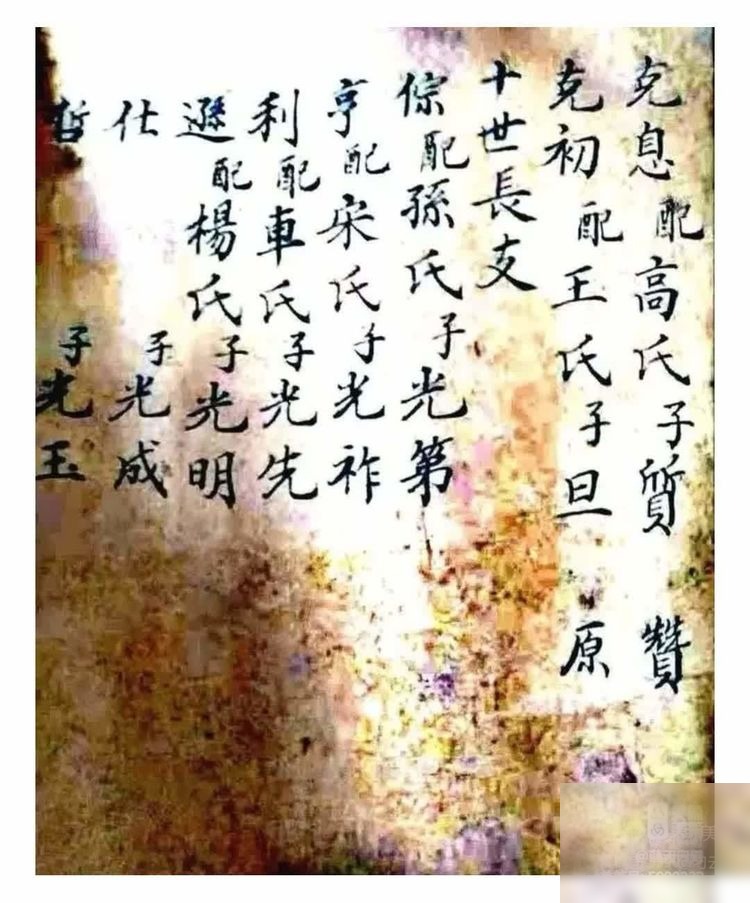 克息配高氏子質 贊
克初配王氏子旦 原
十世長支
倧配孫氏子光第
亨配宋氏子光祚
利配車氏子光先
遜配楊氏子光明
仕 子光成
哲 子光玉